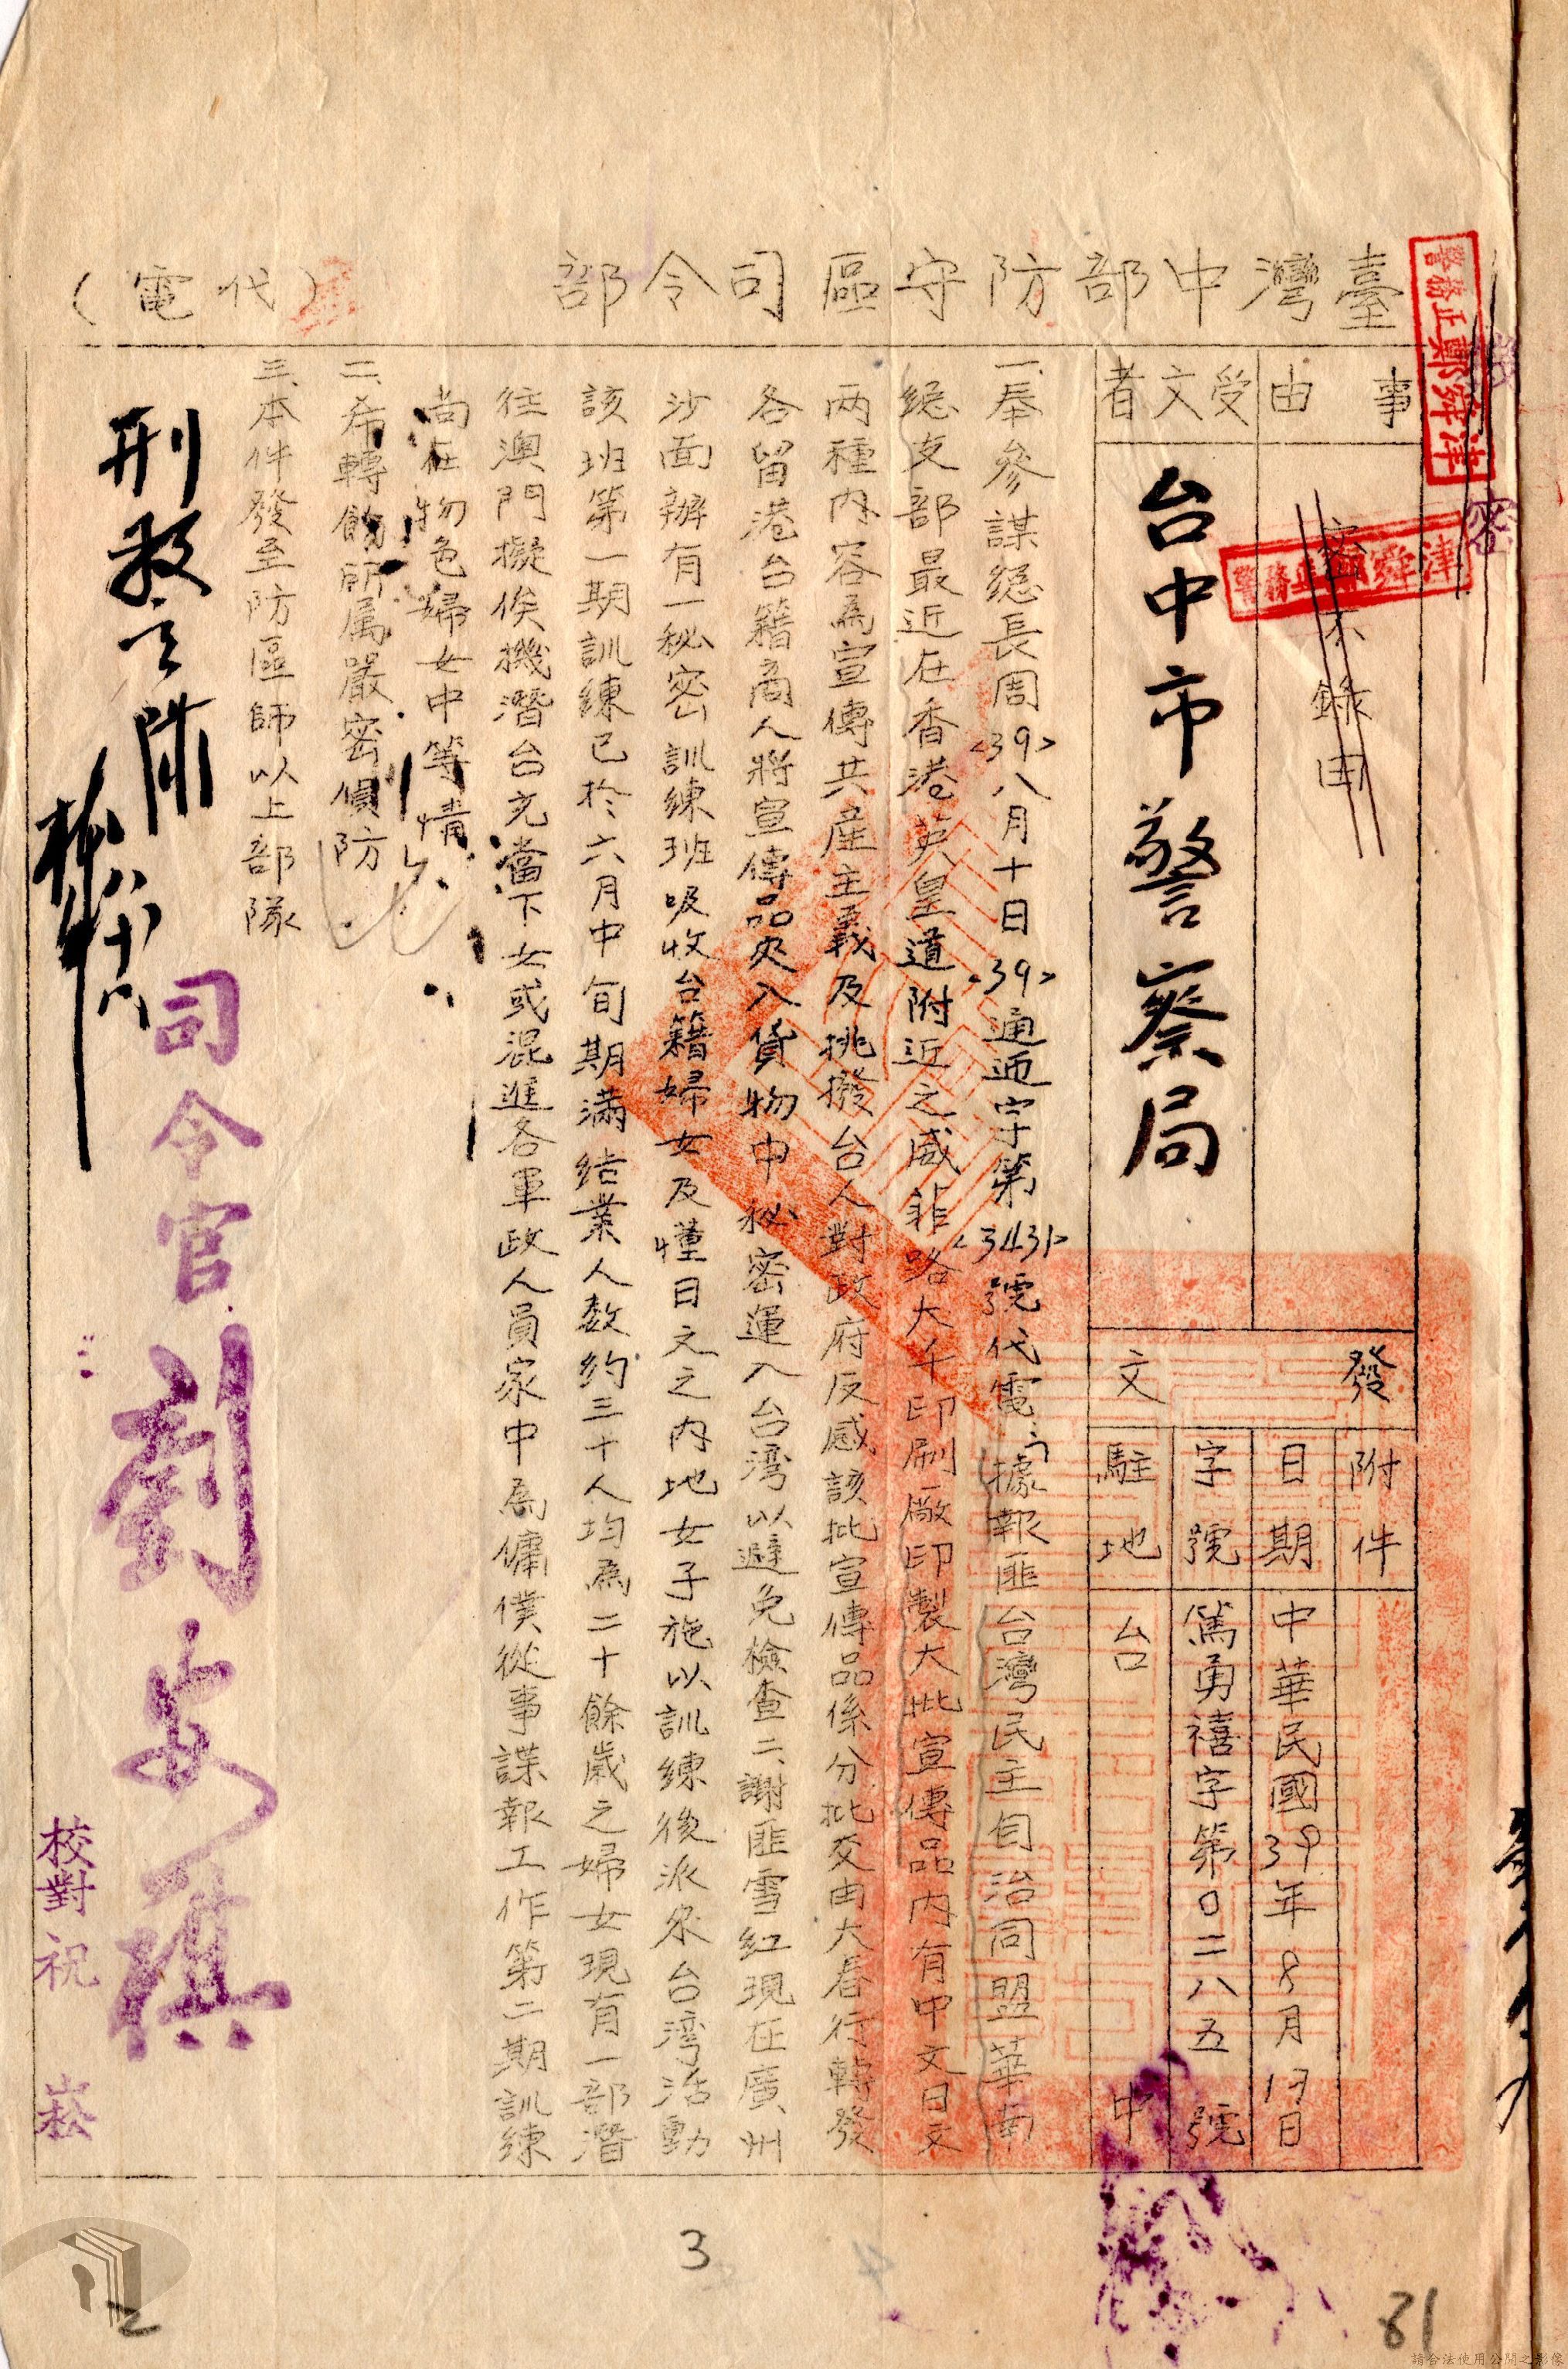 臺灣中部防守區司令部
(代電)
事由
密不錄由
受文者
台中市警察局
發文
附件
日期
中華民國39年8月17日
字號
篤勇禧字第0二八五號
駐地
台中
一、奉參謀總長周<39>八月十日<39>通迺字第<3431>號代電「據報匪台灣民主自治同盟華南
總支部最近在香港英皇道附近之威菲路大千印刷廠印製大批宣傳品內有中文日文
兩種內容為宣傳共產主義及挑撥台人對政府反感該批宣傳品係分批交由大春行轉發
各留港台籍商人將宣傳品夾入貨物中秘密運入台湾以避免檢查二、謝匪雪紅現在廣州
沙面辦有一秘密訓練班吸收台籍婦女及懂日文之內地女子施以訓練後派來台湾活動
該班第一期訓練已於六月中旬期滿結業人数約三十人均為二十餘歲之婦女現有一部潛
往澳門擬俟機潛台充當下女或混進各軍政人員家中為傭僕從事諜報工作第二期訓練
尚在物色婦女中等情
二、希轉飭所属嚴密偵防
三、本件發至防區師以上部隊
司令官劉安祺
校對祝崧
警務正鄭舜津
密
3
81
2
請合法使用公開之影像